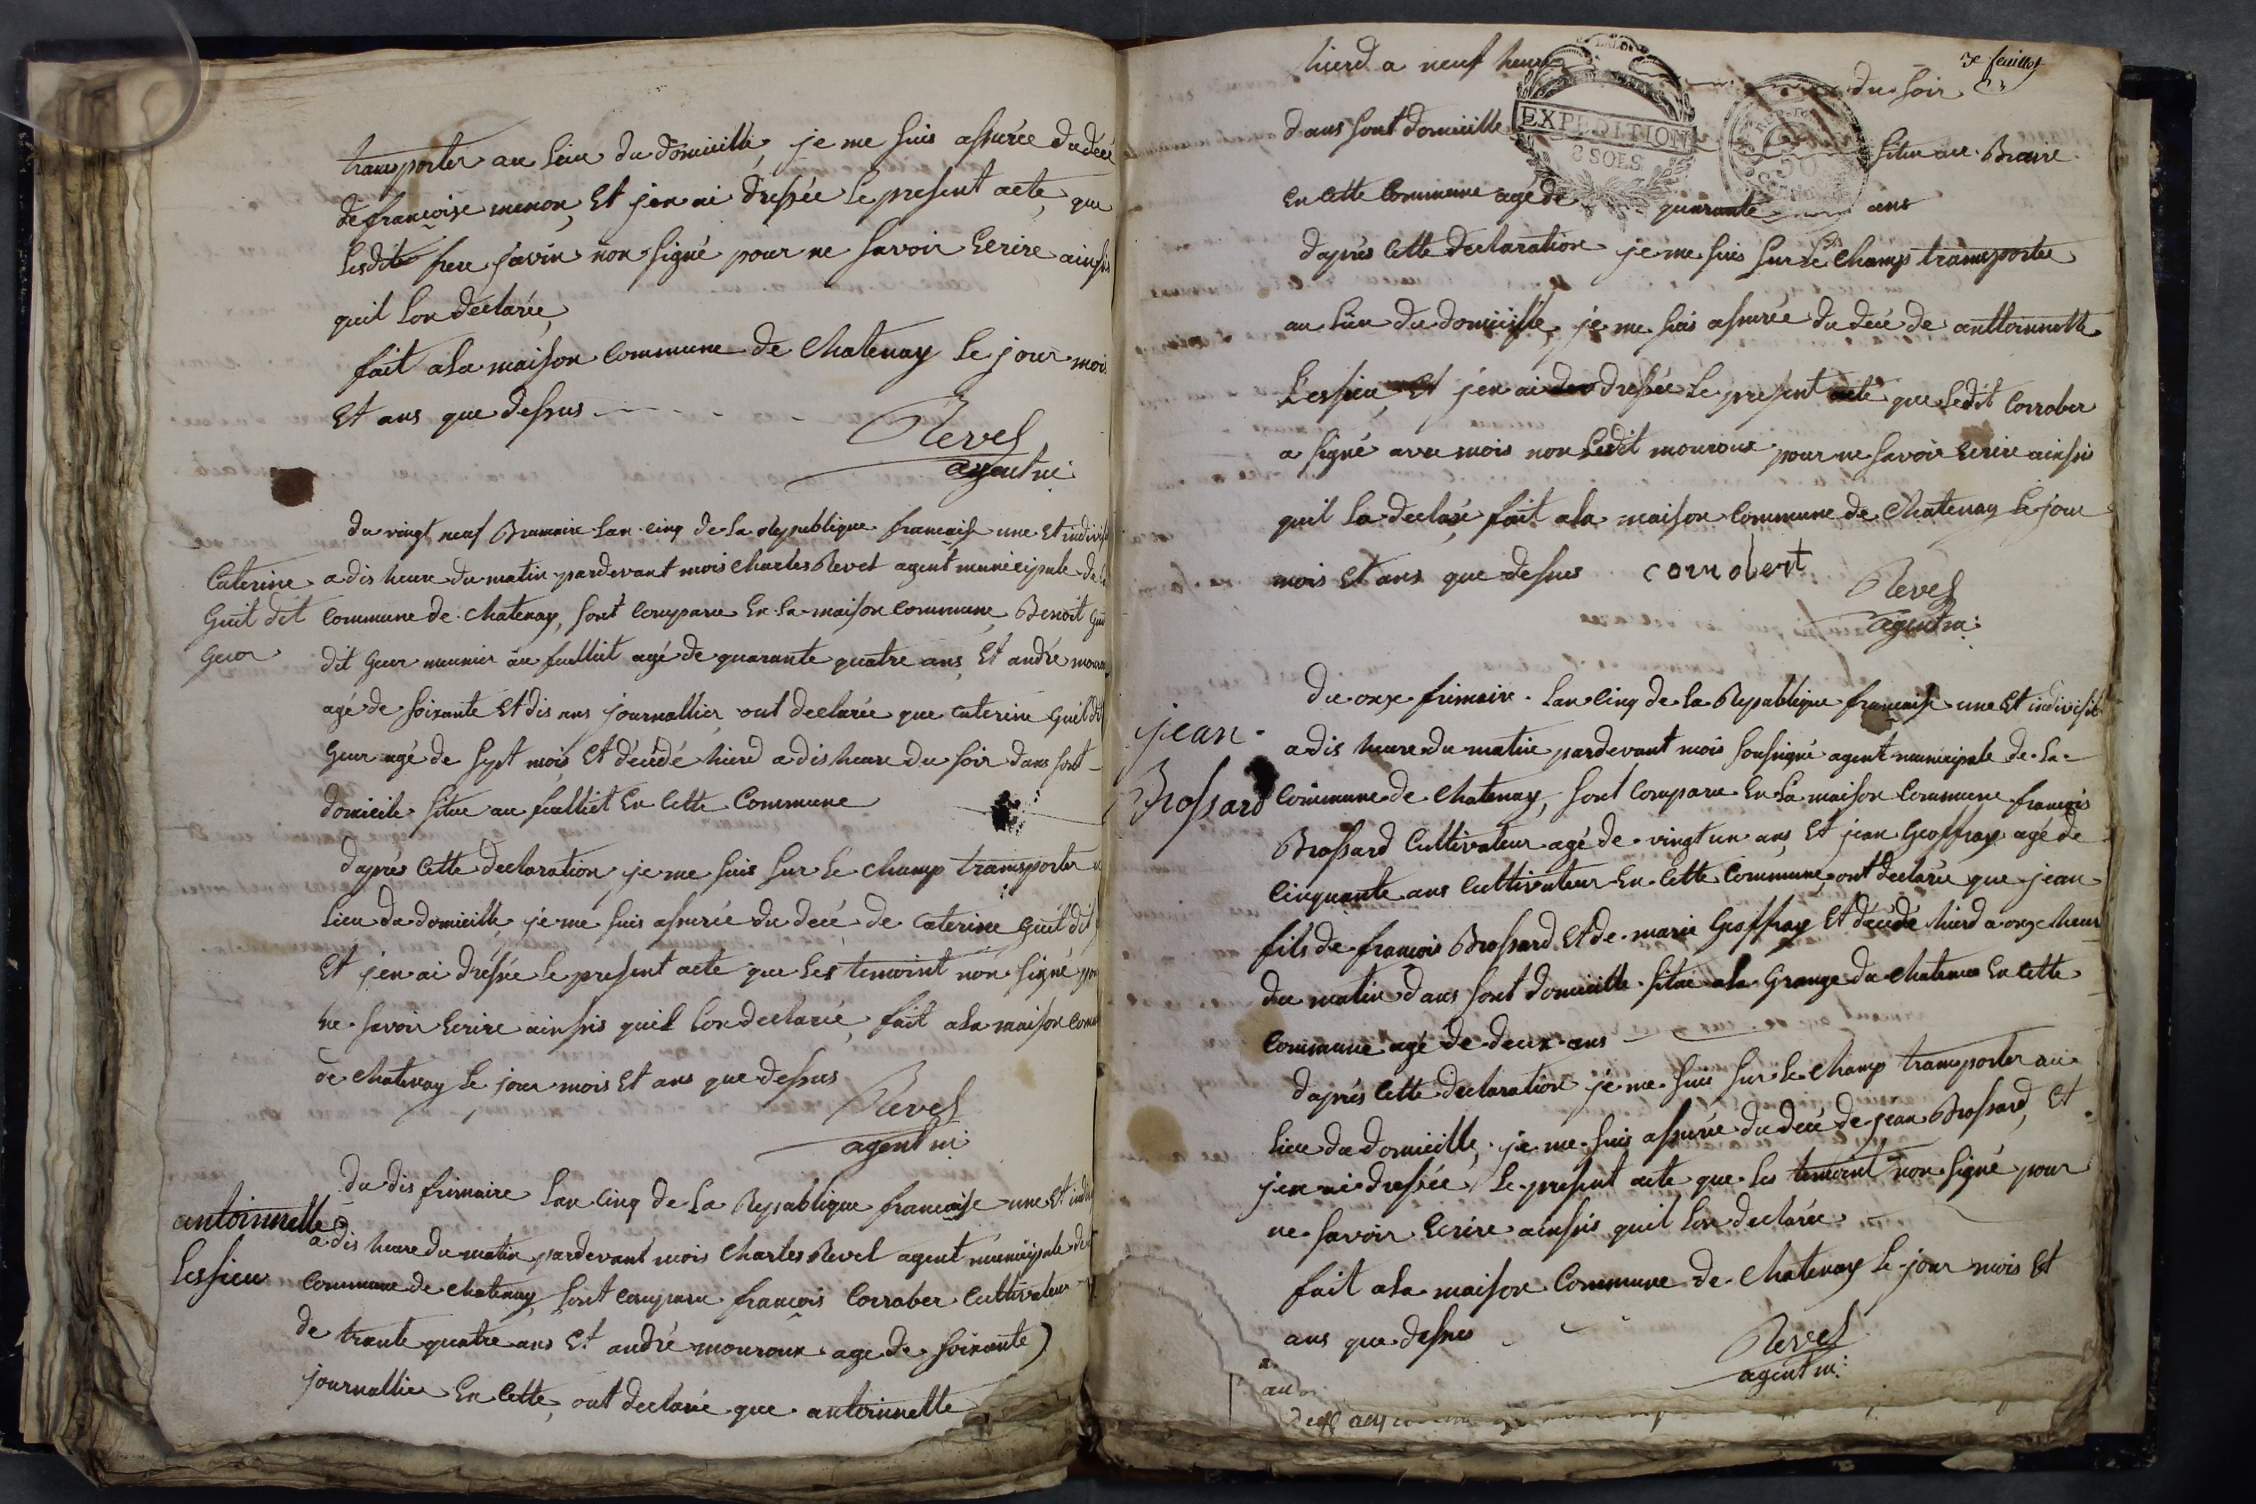 transporter au lieu du domicille, je me suis assurée du décé
de françoise menon, Et jen ai dressée le present acte, que
lesdite frere javin non signé pour ne savoir Ecrire ainsis
quil lon declarée,
fait ala maison commune de Chatenay le jour mois
Et ans que dessus
Revel
agent m:
du vingt neuf Brumaire lan cinq de la Republique francaise une Et indivisi
Caterine
Guit dit
Geur
a dis heure du matin pardevant mois Charles Revel agent municipale de la
commune de Chatenay, sont comparu En la maison commune, Benoit Guit
dit Geur meunier au fuilliet agé de quarante quatre ans, Et andré mourou
agé de soixante Et dis ans journallier ont declarée que caterine Guit dit
Geur agé de sept mois Et décédé hierd a dis heure du soir dans sont
domicile situe au fuilliet En cette Commune
daprés cette declaration je me suis sur le champ transporter
lieu du domicille je me suis assurée du decé, de caterine Guit dit
Et jen ai dressée le present acte que les temoint non signé pou
ne savoir Ecrire ainssis quil lon declarée, fait ala maison com
de Chatenay le jour mois Et ans que dessus
Revel
agent m:
du dis frimaire lan cinq de la Republique francaise une Et indi
antoinnette
Lessieu
a dis heure du matin pardevant mois Charles Revel agent municipale de
Commune de Chatenay, sont comparu françois Corraber Cultivateur
de trante quatre ans Et andré mouroux age de soixante
journallie En cette, ont declarée que antoinnette
3e feuillet
hierd a neuf heure du soir
dans sont domicille situe au Braire
EXPEDITION
8 SOLS
En cette Commune agé de quarante ans
daprés cette declaration je me suis sur le champ transporter
au lieu du domicille, je me suis assurée du decé de anttoinnette
Lessieu, Et jen ai dressée le present acte que ledit Corraber
a signé avec mois non Ledit mouroux pour ne savoir Ecrire ainsis
quil la declaré, fait ala maison commune de Chatenay le jour
mois Et ans que dessus corrobert
Revel
agent m:
du onze frimaire lan cinq de la Republique francaise une Et indivisible
jean
Brossard
a dis heure du matin pardevant mois soussigné agent municipale de la
Commune de Chatenay, sont comparu En la maison commune françois
Brossard Cultivateur agé de vingt un ans, Et jean Geoffray agé de
Cinquante ans Cultivateur En cette Commune, ont declarée que jean
fils de françois Brossard Et de marie Geoffray Et décédé hierd a onze heur
du matin dans sont domicille situe ala Grange du Chateaux En cette
Commune agé de deux ans
daprés cette declaration je me suis sur le champ transporter au
lieu du domicille, je me suis assurée du decé de jean Brossard, Et
jen ai dressée, le present acte que les temoint non signé pour
ne savoir Ecrire ainssis quil lon declarée
fait ala maison Commune de Chatenay le jour mois Et
ans que dessus
Revel
agent m:
au